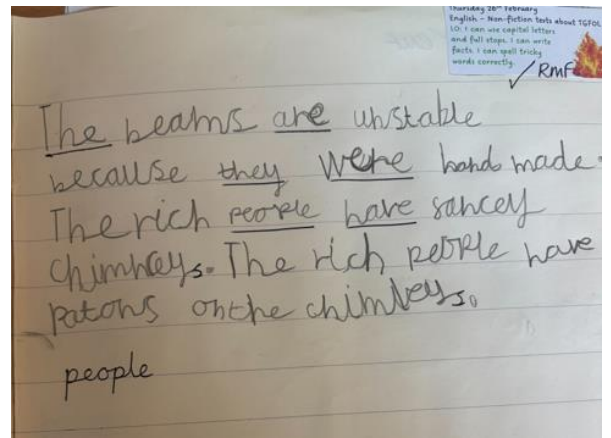 Thursday 26th February
English - Non-fiction texts about TGFOL
LO: I can use capital letters
and full stops. I can write
facts. I can spell tricky
words correctly.
RMF
The beams are unstable
because they were hand made.
The rich people have sancey
chimneys. The rich people have
patons on the chimleys.
people